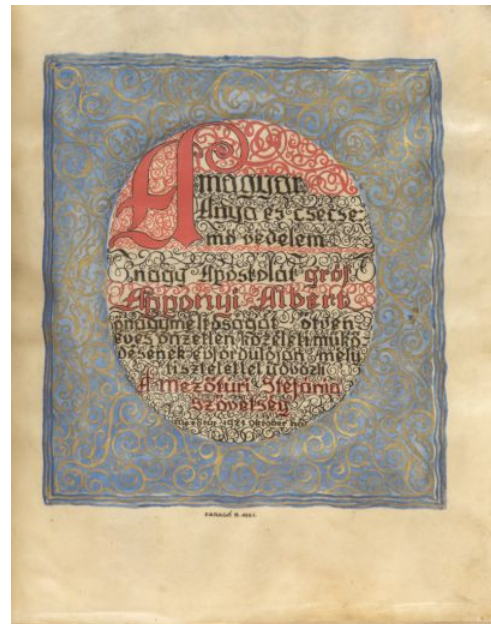 A magyar
Anya és csecse-
mő védelem
nagy Apostolát gróf
Apponyi Albert
őnagyméltóságát ötven
éves önzetlen közéleti műkö-
désének évfordulóján mély
tisztelettel üdvözli
A Mezőtúri Stefánia
Szövetség
Mezőtúr 1921 Október hó